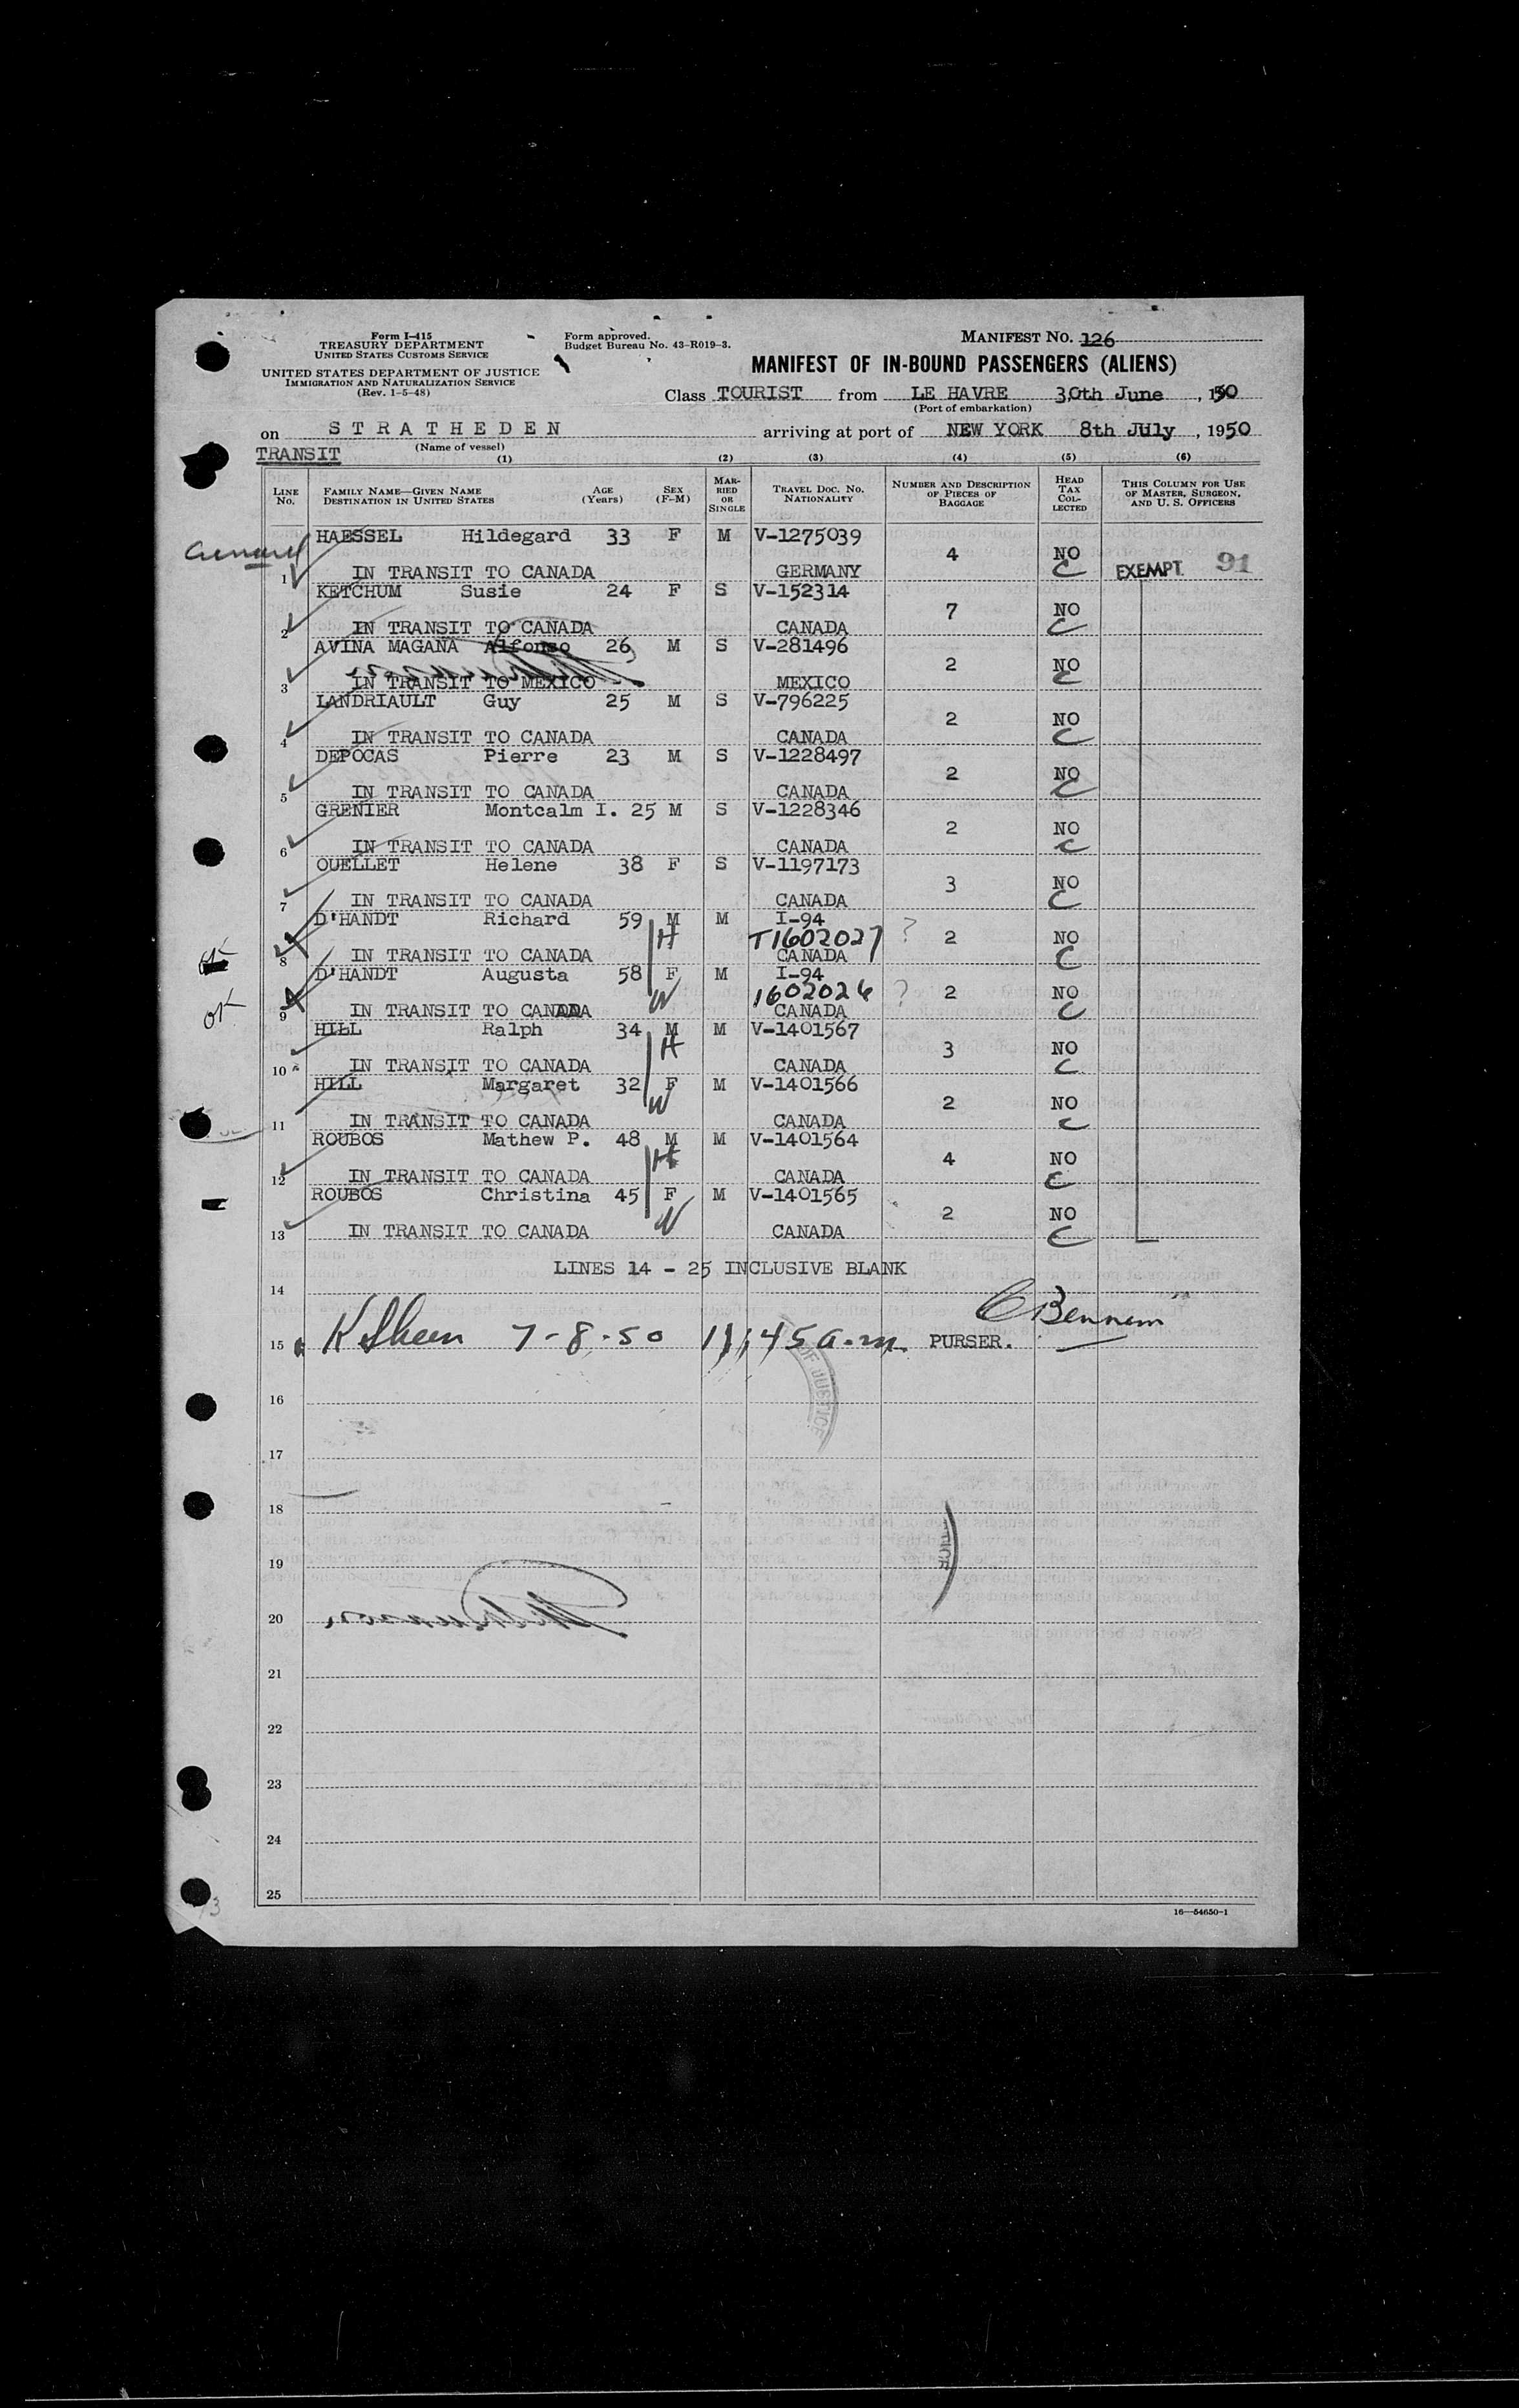 Form I-415
TREASURY DEPARTMENT
UNITED STATES CUSTOMS SERVICE
UNITED STATES DEPARTMENT OF JUSTICE
IMMIGRATION AND NATURALIZATION SERVICE
(Rev. 1-5-48)
Form approved.
Budget Bureau No. 43-R019-3.
MANIFEST No. 126
MANIFEST OF IN-BOUND PASSENGERS (ALIENS)
Class TOURIST from LE HAVRE 30th June , 1950
(Port of embarkation)
on STRATHEDEN arriving at port of NEW YORK 8th July , 1950
(Name of vessel)
TRANSIT
(1) (2) (3) (4) (5) (6)
LINE No. FAMILY NAME—GIVEN NAME DESTINATION IN UNITED STATES AGE (Years) SEX (F-M) MARRIED OR SINGLE TRAVEL DOC. NO. NATIONALITY NUMBER AND DESCRIPTION OF PIECES OF BAGGAGE HEAD TAX COLLECTED THIS COLUMN FOR USE OF MASTER, SURGEON, AND U. S. OFFICERS
HAESSEL Hildegard 33 F M V-1275039 4 NO
1 IN TRANSIT TO CANADA GERMANY C EXEMPT 91
KETCHUM Susie 24 F S V-152314 7 NO
2 IN TRANSIT TO CANADA CANADA C
AVINA MAGANA Alfonso 26 M S V-281496 2 NO
3 IN TRANSIT TO MEXICO MEXICO C
LANDRIAULT Guy 25 M S V-796225 2 NO
4 IN TRANSIT TO CANADA CANADA C
DEPOCAS Pierre 23 M S V-1228497 2 NO
5 IN TRANSIT TO CANADA CANADA C
GRENIER Montcalm I. 25 M S V-1228346 2 NO
6 IN TRANSIT TO CANADA CANADA C
OUELLET Helene 38 F S V-1197173 3 NO
7 IN TRANSIT TO CANADA CANADA C
D'HANDT Richard 59 M M I-94
H T1602027 ? 2 NO
8 IN TRANSIT TO CANADA CANADA C
D'HANDT Augusta 58 F M I-94
ok W 1602026 ? 2 NO
9 IN TRANSIT TO CANADA CANADA C
HILL Ralph 34 M M V-1401567
H 3 NO
10 IN TRANSIT TO CANADA CANADA C
HILL Margaret 32 F M V-1401566
W 2 NO
11 IN TRANSIT TO CANADA CANADA C
ROUBOS Mathew P. 48 M M V-1401564
H 4 NO
12 IN TRANSIT TO CANADA CANADA C
ROUBOS Christina 45 F M V-1401565
W 2 NO
13 IN TRANSIT TO CANADA CANADA C
LINES 14 - 25 INCLUSIVE BLANK
14
15 7-8-50 11;45 a.m. PURSER.
OF JUSTICE
16
17
18
19
20
21
22
23
24
25
16—54650-1